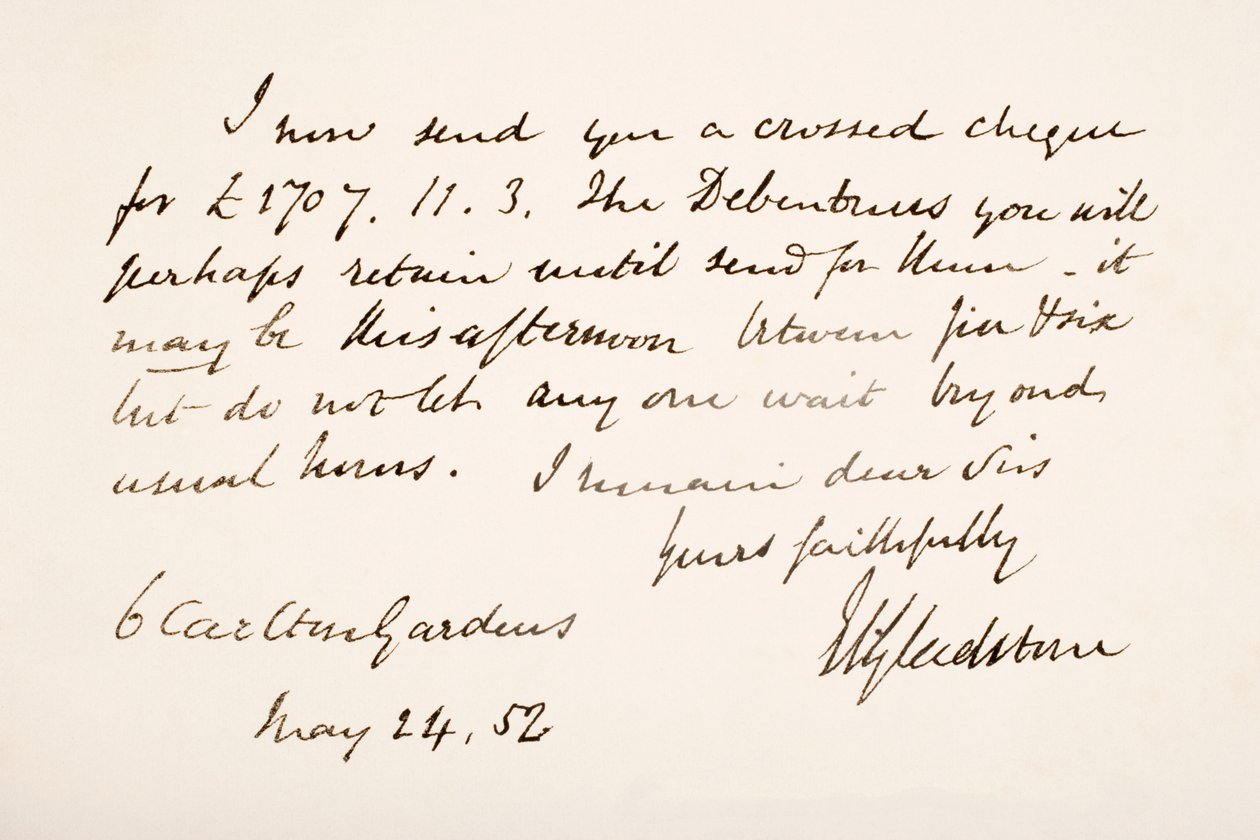 I now send you a crossed cheque
for £1707. 11. 3. The Debentures you will
perhaps retain until send for them - it
may be this afternoon between five & six
but do not let any one wait beyond
usual hours. I remain dear Sirs
Yours faithfully
WEGladstone
6 Carlton Gardens
May 24, 52